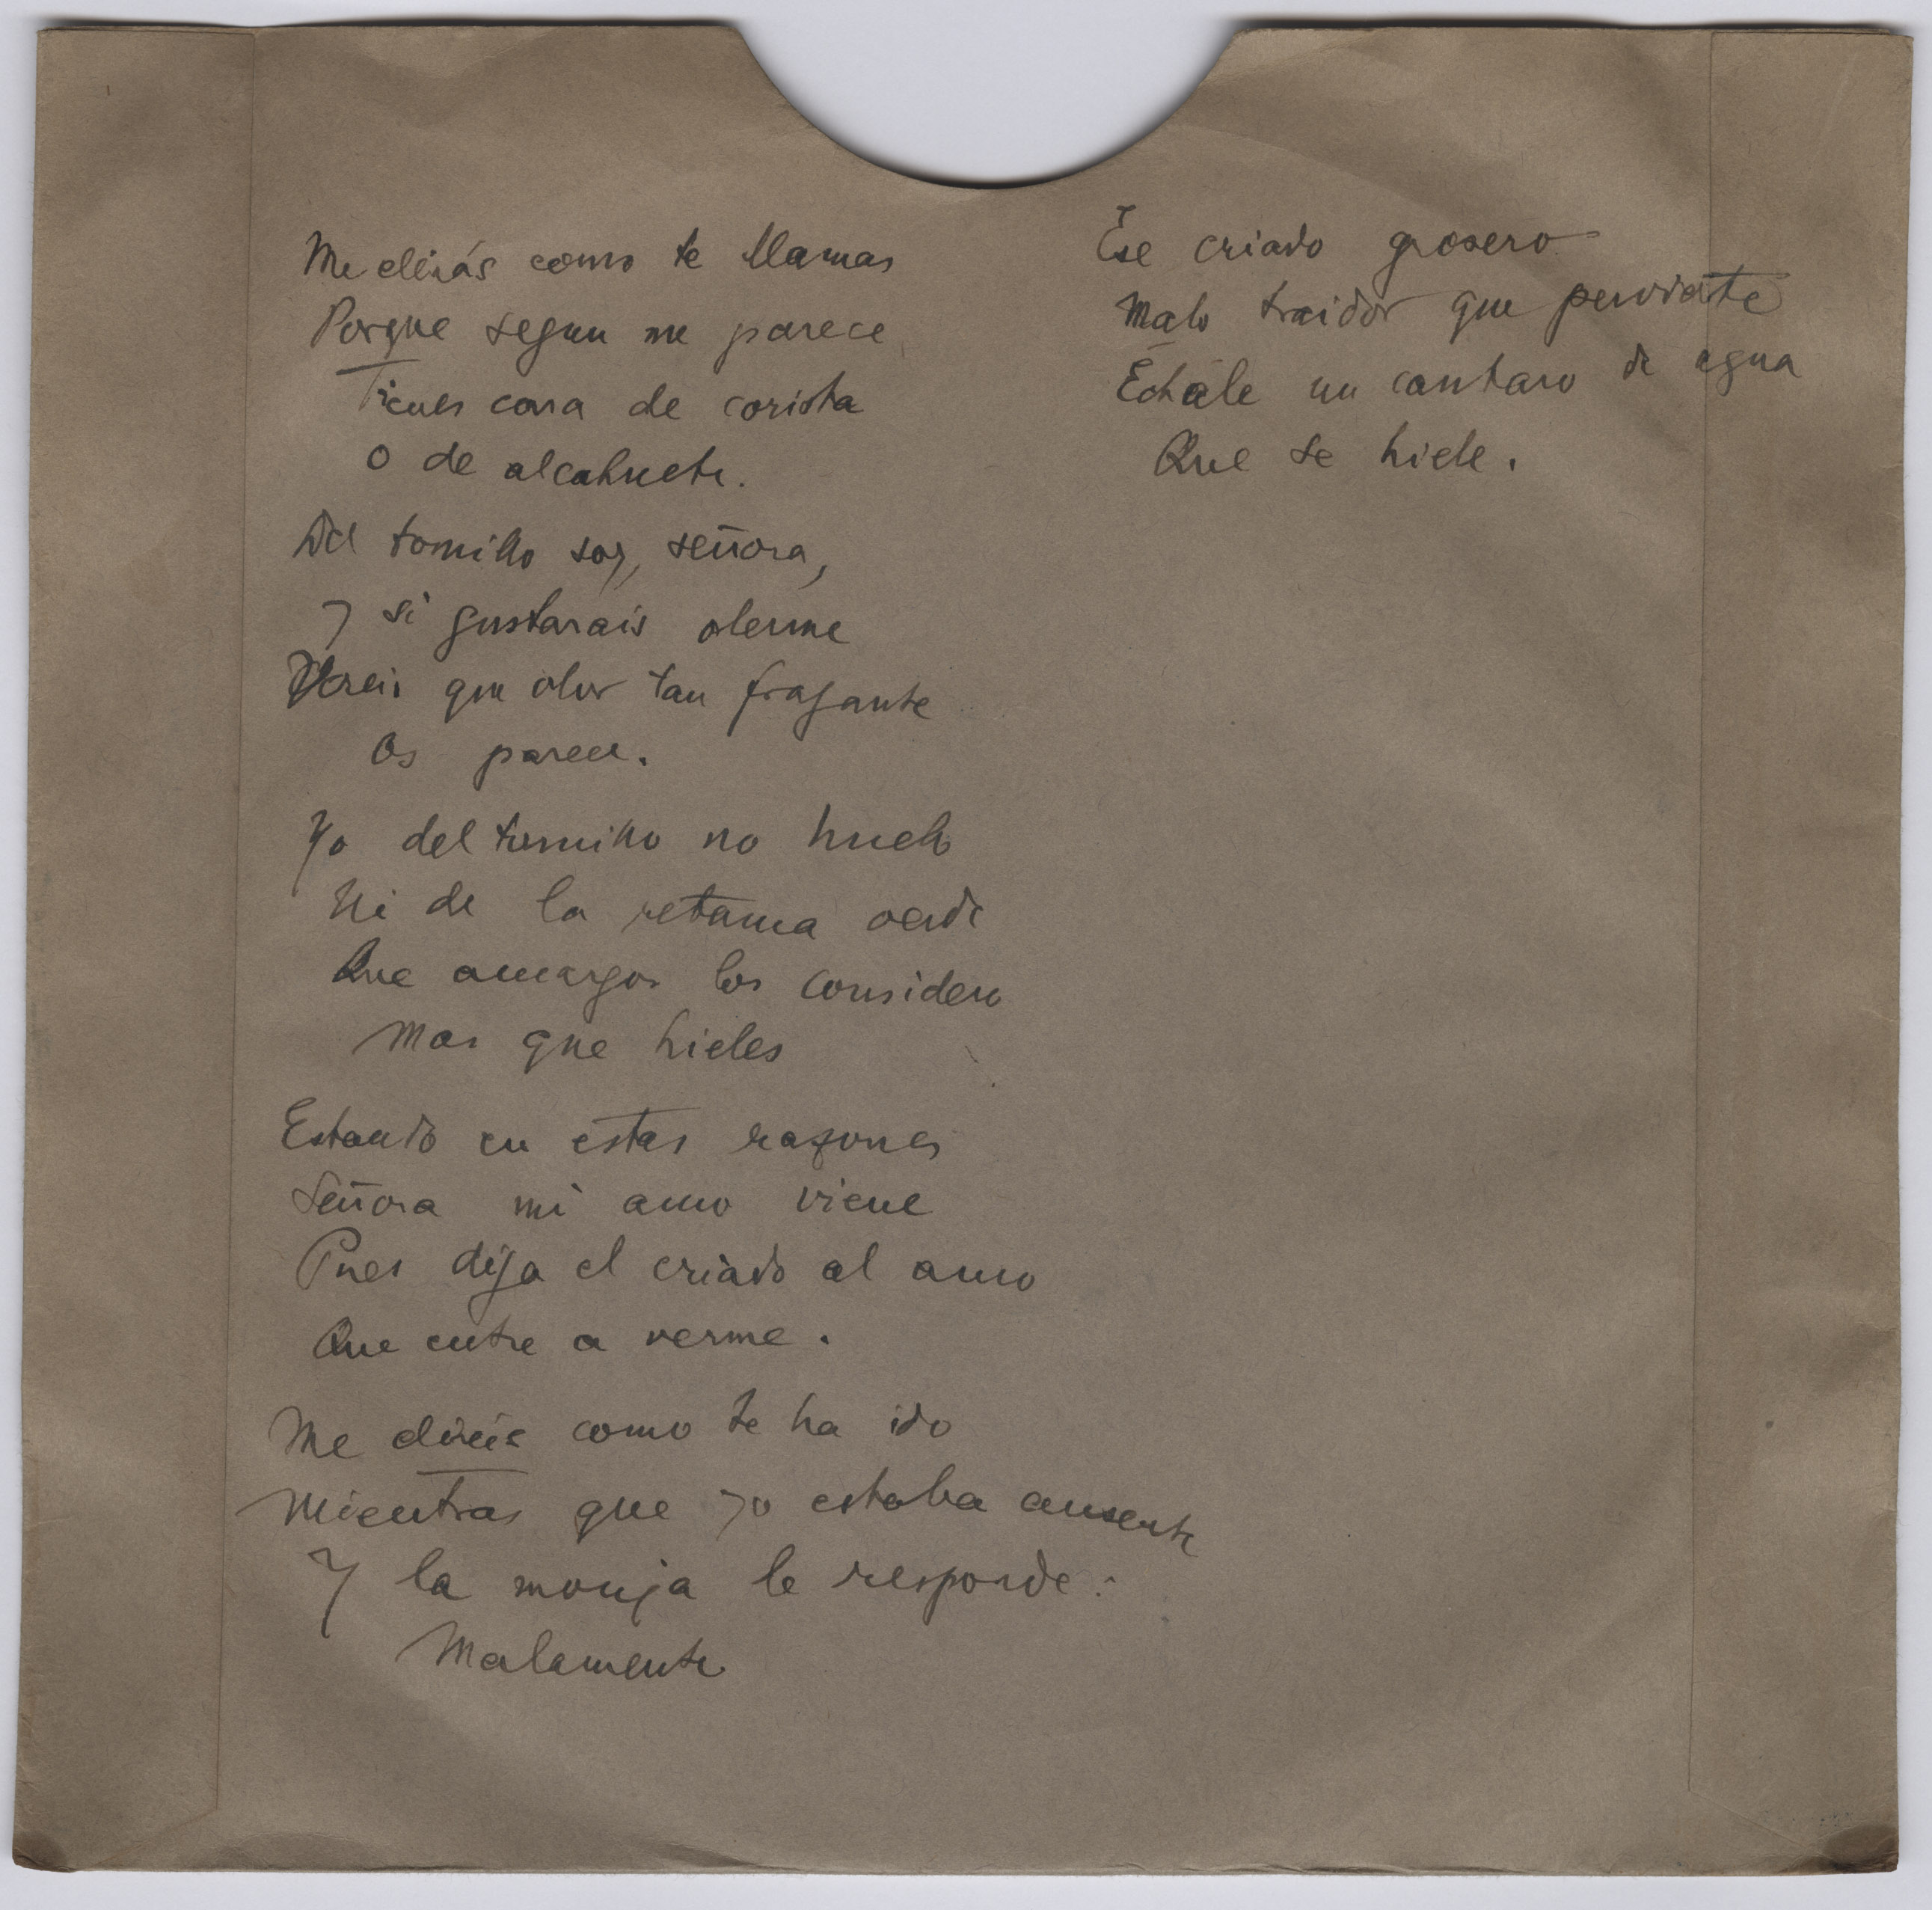 Me dirás como te llamas
Porque segun me parece
Tienes cara de corista
O de alcahuete.
Del tomillo soy, señora,
y si gustarais olerme
Vereis que olor tan fragante
Os parece.
Yo del tomillo no huelo
Ni de la retama verde
Que amargos los considero
Mas que hieles
Estando en estas razones
Señora mi amo viene
Pues diga el criado al amo
Que entre a verme.
Me diréis como te ha ido
Mientras que yo estaba ausente
Y la monja le responde:
Malamente
Ese criado grosero
Malo traidor que
Échale un cantaro de agua
Que se hiele.